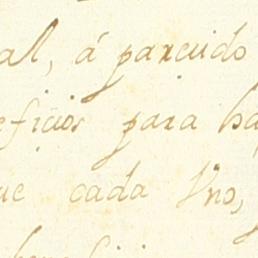 al, á parecido
eficios para ha
ue cada Vno,